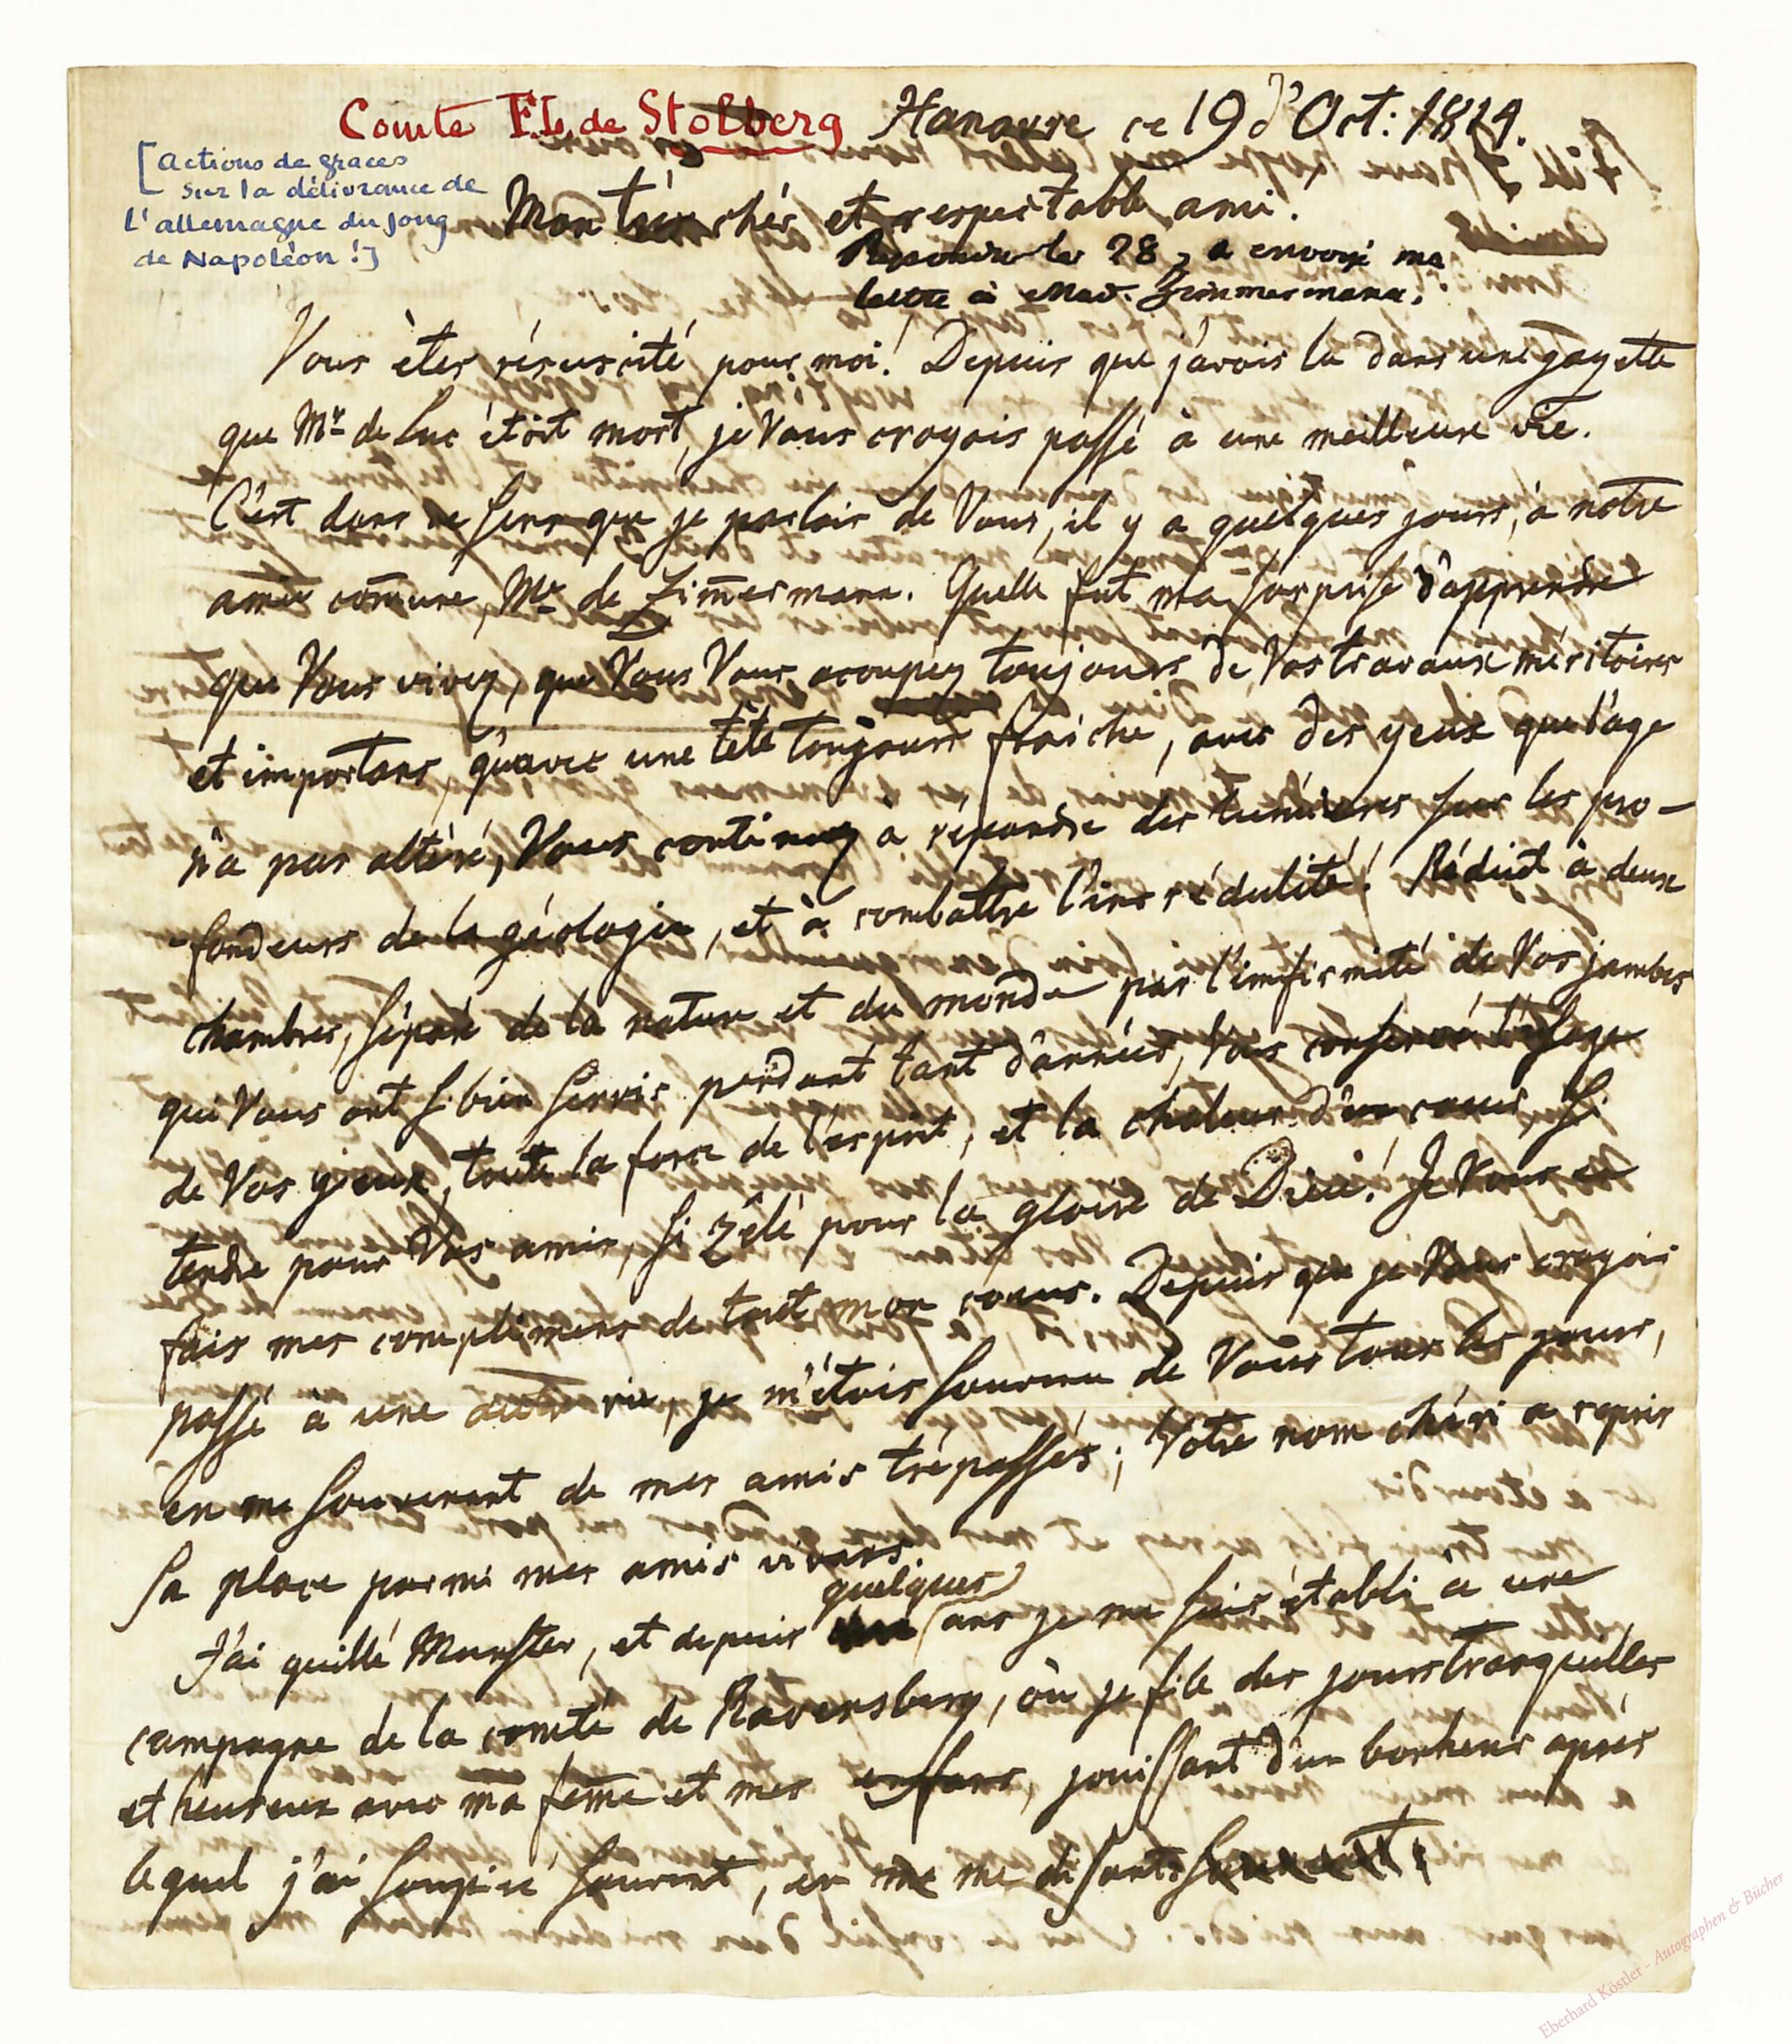 Comte F.L. de Stolberg
Hanovre ce 19 d'Oct: 1814.
[Actions de graces
sur la délivrance de
l'allemagne du joug
de Napoléon!]
Mon très chér et respectable ami.
Repondu le 28, a envoyé ma
lettre à Mad. Zimmermann.
Vous êtes résuscité pour moi! Depuis que j'avois lu dans une gazette
que Mr de Luc étoit mort, je Vous croyois passé à une meilleure vie.
C'est dans ce sens que je parlois de Vous, il y a quelques jours, à notre
amie com̄une, Me de Zim̄ermann. Quelle fut ma surprise d'apprendre
que Vous vivez, que Vous Vous occupez toujours de Vos travaux méritoires
et importans, qu'avec une tête toujours fraiche, avec des yeux que l'age
n'a pas altéré, Vous continuez à répandre des lumières sur les pro-
-fondeurs de la géologie, et à combattre l'incrédulité! Réduit à deux
chambres, séparé de la nature et du monde par l'infirmité de Vos jambes
qui Vous ont si bien servis pendant tant d'années, Vous conservé l'usage
de Vos yeux, toute la force de l'esprit, et la chaleur d'un coeur, si
tendre pour Vos amis, si zélé pour la gloire de Dieu! Je Vous en
fais mes complimens de tout mon coeur. Depuis que je Vous croyois
passé à une autre vie, je m'étois souvenu de Vous tous les jours,
en me souvenant de mes amis trépassés; Votre nom chéri a repris
sa place parmi mes amis vivans.
J'ai quitté Munster, et depuis quelques ans je me suis établi à une
campagne de la comté de Ravensberg, où je file des jours tranquilles
et heureux avec ma fem̄e et mes enfans, jouissant d'un bonheur après
lequel j'ai soupiré souvent, en me me disant souvent:
Eberhard Köstler - Autographen & Bücher